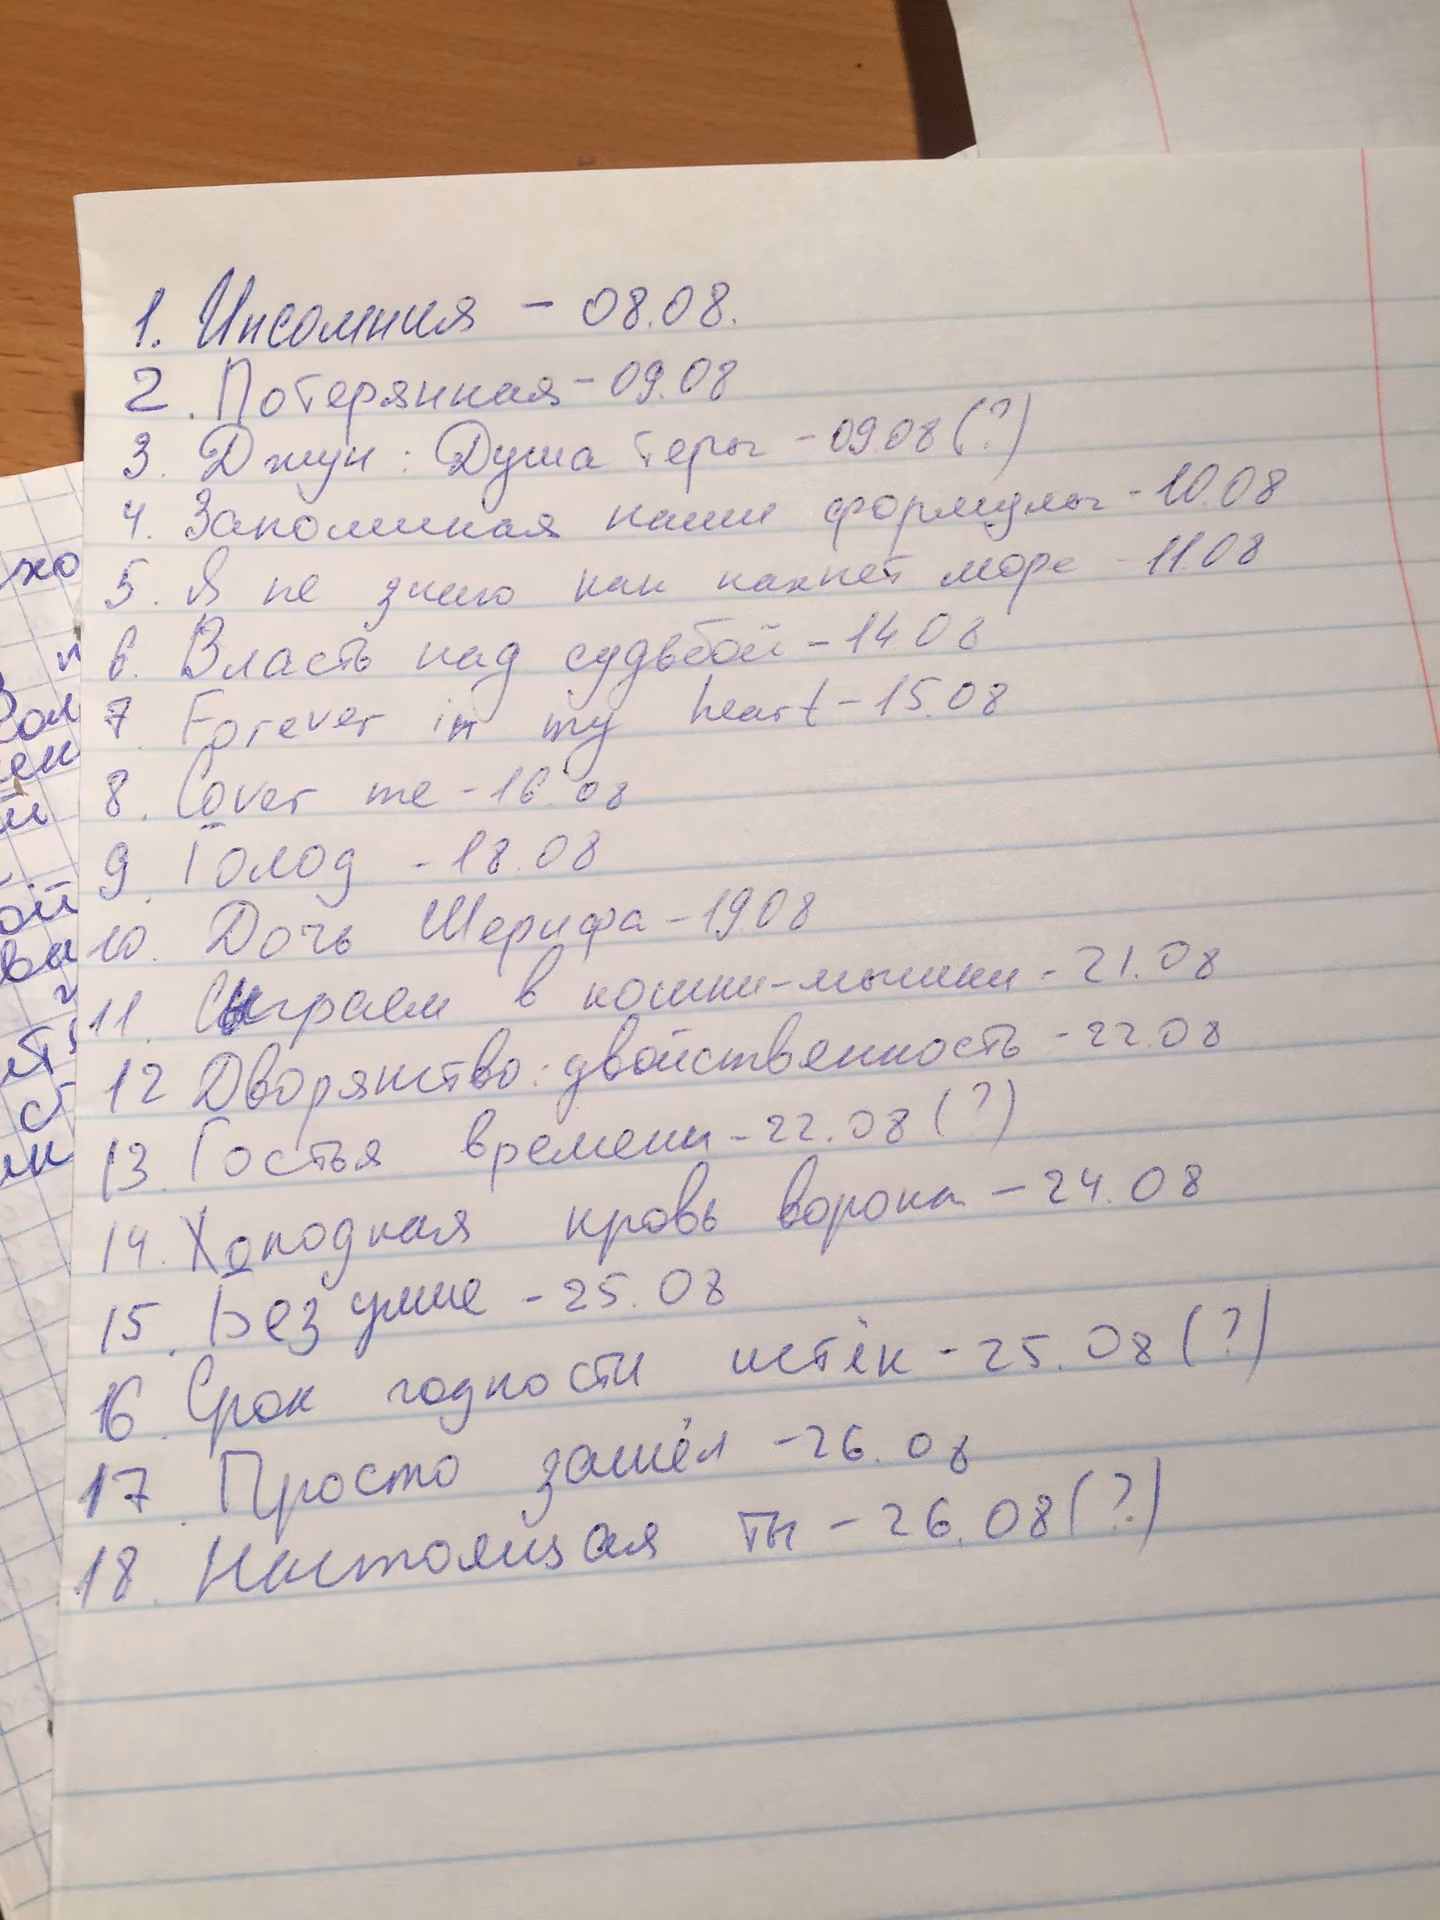 1. Инсомния - 08.08.
2. Потерянная - 09.08
3. Джун: Душа Теры - 09.08 (?)
4. Запоминая наши формулы - 10.08
5. Я не знаю как пахнет море - 11.08
6. Власть над судьбой - 14.08
7 Forever in my heart - 15.08
8. Cover me - 16.08
9. Голод - 18.08
10. Дочь Шерифа - 19.08
11. Сыграем в кошки-мышки - 21.08
12 Дворянство: двойственность - 22.08
13. Гостья времени - 22.08 (?)
14. Холодная кровь ворона - 24.08
15. Безумие - 25.08
16. Срок годности истёк - 25.08 (?)
17. Просто зашёл - 26.08
18. Настоящая ты - 26.08 (?)
хо
ой
ва
ст